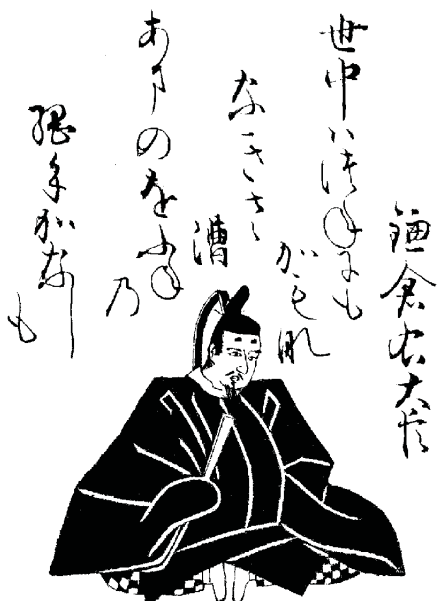 鎌倉右大臣
世中ハつねにも
かも那
なきさ
漕
あまのをふね
乃
綱手かなし
も